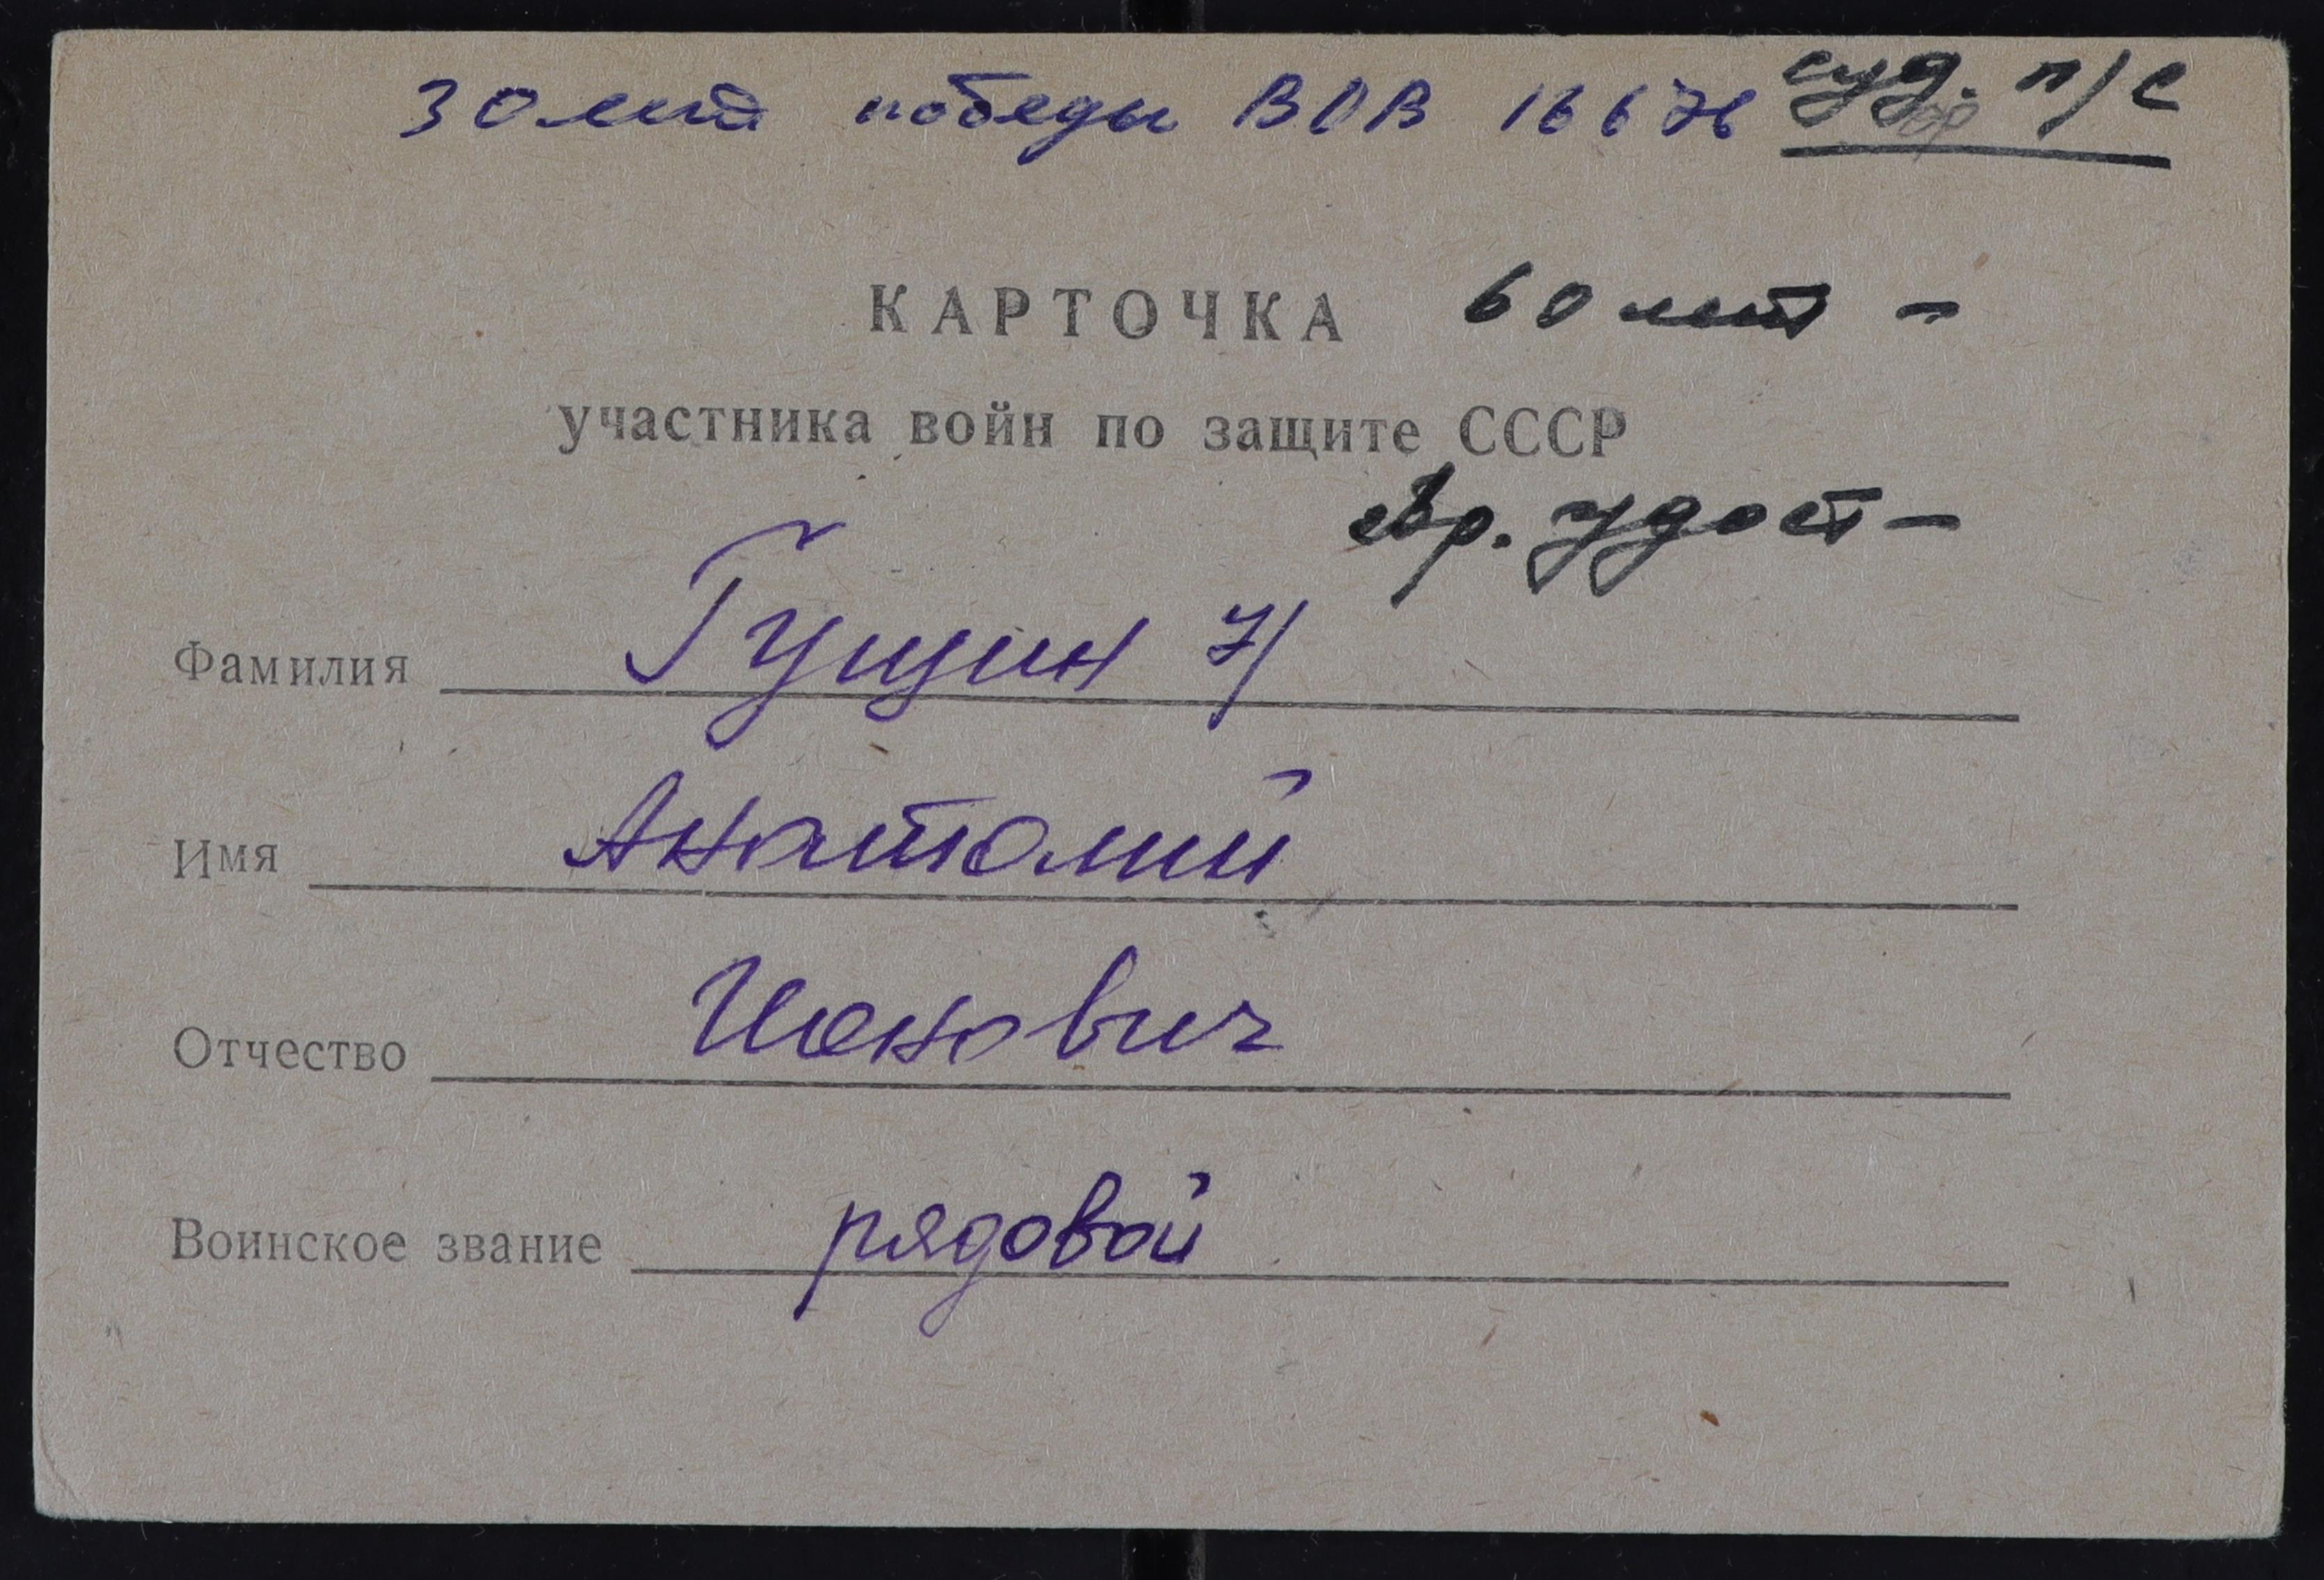 30 лет победы ВОВ 16 6 76 суд. п/с
КАРТОЧКА 60 лет -
участника войн по защите СССР
удост -
Фамилия Гущин 7/
Имя Анатолий
Отчество Ионович
Воинское звание рядовой